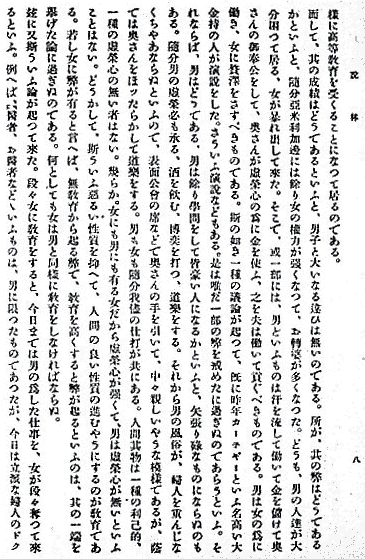 説林
八
様に高等教育を受くることになつて居るのである。
而して、其の成績はどうであるといふと、男子と大いなる違ひは無いのである。所が、其の弊はどうである
かといふと、随分亜米利加邊には餘り女の權力が強くなつて、お轉婆が多くなつた。どうも、男の人達が大
分困つて居る、女が暴れ出して來た。そこで、或一部には、男といふものは汗を流して働いて金を儲けて奥
さんの御奉公をして、奥さんが虚榮心の爲に金を使ふ、之を夫は働いて貢ぐべきものである。男は女の爲に
働き、女に贅澤をさすべきものである。斯の如き一種の議論が起つて、既に昨年カーネギーといふ名高い大
金持の人が演說をした。さういふ演說などもある。是は唯だ一部の弊を戒めたに過ぎぬのであらうといふ。そ
れならば、男はどうである、男は餘り學問をして皆豪い人になるかといふと、矢張り碌なものにならぬのも
ある。随分男の虚榮心も承る、酒を飲む、博奕を打つ、道樂をする。それから男の風俗が、婦人を重んじな
くちやあならぬといふので、表面公會の席などで奥さんの手を引いて、中々親しいやうな模様であるが、蔭
では奥さんをほツたらかして道樂をする。男も女も随分我儘の仕打が共にある。人間其物は一種の利己的、
一種の虚榮心の無い者はない。幾らか女にも男にも有る女だから虚榮心が強くて、男は虚榮心が無いといふ
ことはない。どうかして、斯ういふ惡るい性質を抑へて、人間の良い性質の進むやうにするのが教育であ
る。若し女に弊が有ると言へば、無教育から起る弊で、教育を高くすると弊が起るといふのは、其の一端を
擧げた論に過ぎぬのである。何としても女は男と同様に教育をしなければならぬ。
玆に又斯ういふ論が起つて來た。段々女に教育をすると、今日までは男の爲した仕事を、女が段々奪つて來
るといふ。例へばお醫者、お醫者などといふものは、男に限つたものであつたが、今日は立派な婦人のドク